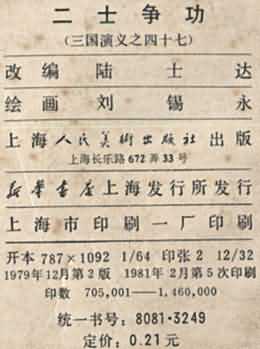 二士争功
(三国演义之四十七)
改编 陆士达
绘画 刘锡永
上海人民美術出版社 出版
上海长乐路672弄33号
新华書店上海发行所发行
上海市印刷一厂印刷
开本 787×1092 1/64 印张 2 12/32
1979年12月第2版 1981年2月第5次印刷
印数 705,001——1,460,000
统一书号: 8081·3249
定价: 0.21元